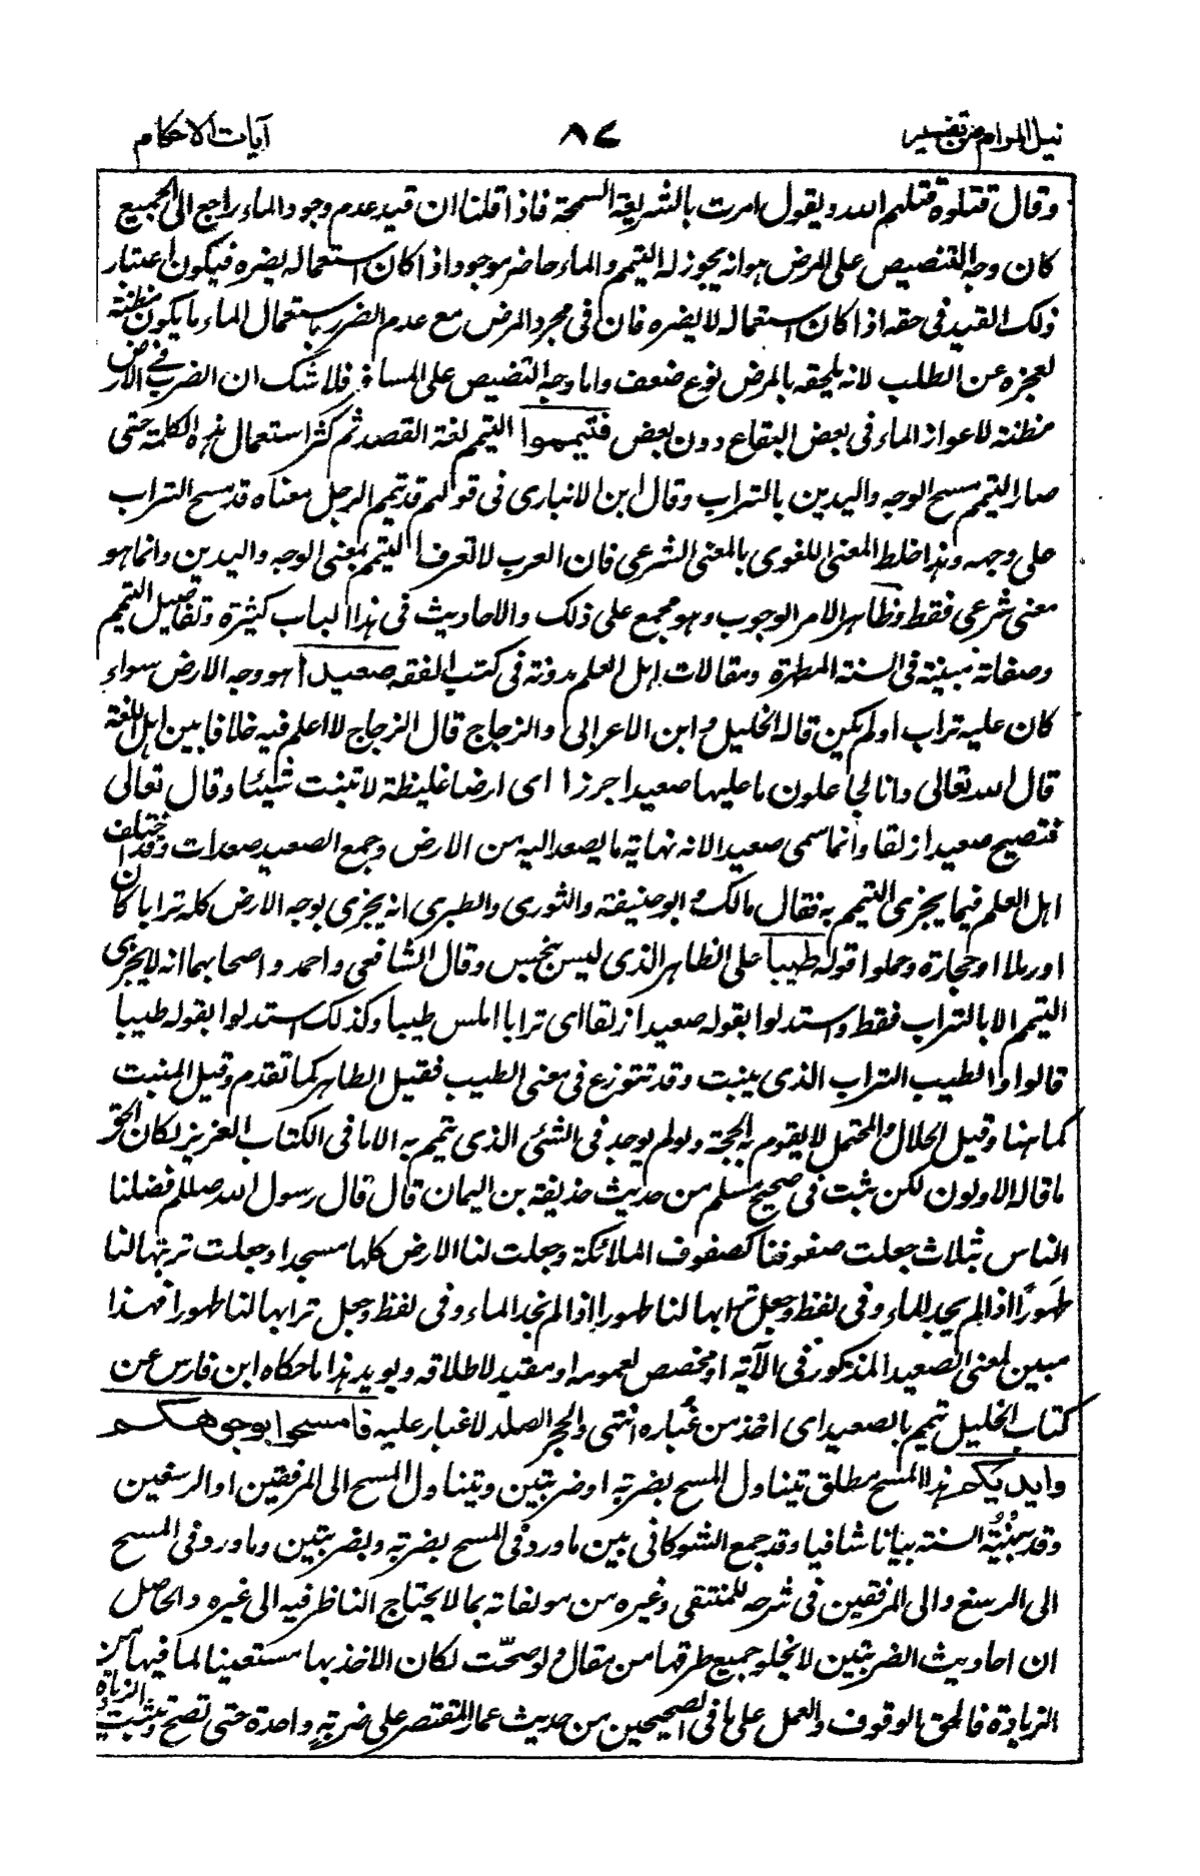 نيل المرام من تفسير
٨٤
آيات الاحكام
وقال قتلوه قتلهم الله ويقول امرت بالشريعة السمحة فاذا قلنا ان قيد عدم وجود الماء راجع الى الجميع
كان وجه التنصيص على المرض هوانه يجوز له التيمم والماء حاضر موجود اذا كان استعماله يضره فيكون اعتبار
ذلك القيد فى حقه اذا كان استعماله لا يضره فان فى مجرد المرض مع عدم الضرر باستعمال الماء ما يكون مظنة
لعجزه عن الطلب لانه يلحقه بالمرض نوع ضعف واما وجه التنصيص على المسافر فلا شك ان الضرب فى الارض
مظنة لاعواز الماء فى بعض البقاع دون بعض فتيمموا التيمم لغة القصد ثم كثر استعمال هذه الكلمة حتى
صار التيمم مسح الوجه واليدين بالتراب وقال ابن الانبارى فى قولهم قد تيمم الرجل معناه قد مسح التراب
على وجهه وهذا خلط المعنى اللغوى بالمعنى الشرعى فان العرب لا تعرف التيمم بمعنى الوجه واليدين وانما هو
معنى شرعى فقط وظاهر الامر الوجوب وهو مجمع على ذلك والاحاديث فى هذا الباب كثيرة وتفاصيل التيمم
وصفاته مبينة فى السنة المطهرة ومقالات اهل العلم مدونة فى كتب الفقه صعيدا هو وجه الارض سواء
كان عليه تراب اولم يكن قاله الخليل وابن الاعرابى والزجاج قال الزجاج لا اعلم فيه خلافا بين اهل اللغة
قال الله تعالى وانا لجاعلون ما عليها صعيدا جرزا اى ارضا غليظة لا تنبت شيئا وقال تعالى
فتصبح صعيدا زلقا وانما سمى صعيدا لانه نهاية ما يصعد اليه من الارض وجمع الصعيد صعدات وقد اختلف
اهل العلم فيما يجزى التيمم به فقال مالك وابو حنيفة والثورى والطبرى انه يجزى بوجه الارض كله ترابا كان
اورملا او حجارة وحملوا قوله طيبا على الطاهر الذى ليس بنجس وقال الشافعى واحمد واصحابهما انه لا يجزى
التيمم الا بالتراب فقط واستدلوا بقوله صعيدا زلقا اى ترابا املس طيبا وكذلك استدلوا بقوله طيبا
قالوا والطيب التراب الذى ينبت وقد تنوزع فى معنى الطيب فقيل الطاهر كما تقدم وقيل المنبت
كما هنا وقيل الحلال والمحتمل لا يقوم به الحجة ولولم يوجد فى الشئى الذى يتيمم به الا ما فى الكتاب العزيز لكان الحق
ما قاله الاولون لكن ثبت فى صحيح مسلم من حديث حذيفة بن اليمان قال قال رسول الله صللم فضلنا
الناس بثلاث جعلت صفوفنا كصفوف الملائكة وجعلت لنا الارض كلها مسجدا وجعلت تربتها لنا
طهورًا اذا لم يجد الماء وفى لفظ وجعل ترابها لنا طهورا اذا لم نجد الماء وفى لفظ وجعل ترابها لنا طهورا فهذا
مبين لمعنى الصعيد المذكور فى الآية او مخصص لعمومه او مقيد لاطلاقه ويويد هذا ما حكاه ابن فارس عن
كتاب الخليل تيمم بالصعيد اى اخذ من غباره انتهى والحجر الصلد لا غبار عليه فامسحوا بوجوهكم
وايديكم هذا المسح مطلق يتناول المسح بضربة او ضربتين ويتناول المسح الى المرفقين او الرسغين
وقد بينته السنة بيانا شافيا وقد جمع الشوكانى بين ما ورد فى المسح بضربة وبضربتين وما ورد فى المسح
الى الرسغ والى المرفقين فى شرحه للمنتقى وغيره من مولفاته بما لا يحتاج الناظر فيه الى غيره والحاصل
ان احاديث الضربتين لا يخلو جميع طرقها من مقال ولو صحّت لكان الاخذ بها مستعينا لما فيها من
الزيادة فالحق الوقوف والعمل على ما فى الصحيحين من حديث عمار المقتصر على ضربة واحدة حتى تصح وتثبت الزيادة